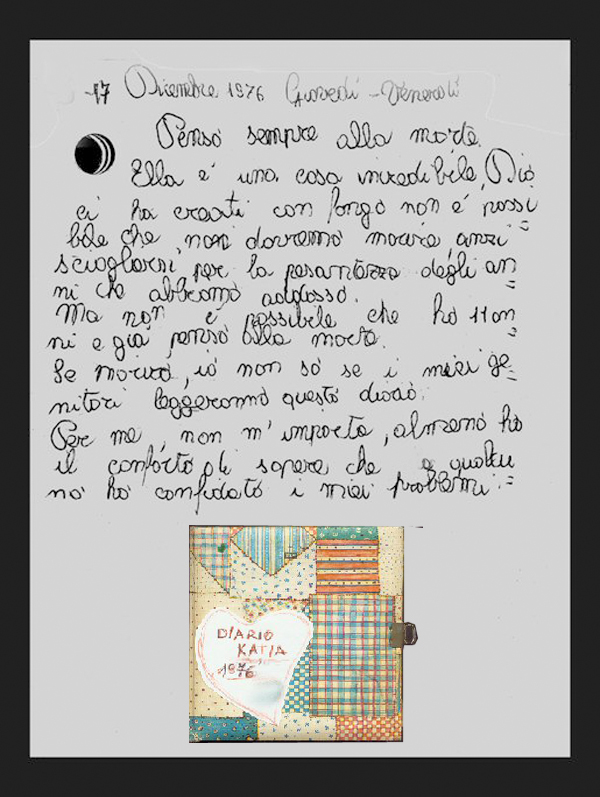 17 Dicembre 1976 Giovedì - Venerdì
Penso sempre alla morte.
Ella é una cosa incredibile, Dio
ci ha creati con fango non é possi
bile che non dovremo morire, anzi
scioglierci per la pesantezza degli an
ni che abbiamo addosso.
Ma non é possibile che ho 11 an
ni e già penso alla morte.
Se morirò, io non só se i miei ge
nitori leggeranno questo diario.
Per me, non m'importa, almeno ho
il conforto di sapere che a qualcu
no ho confidato i miei problemi.
DIARIO
KATIA
1976